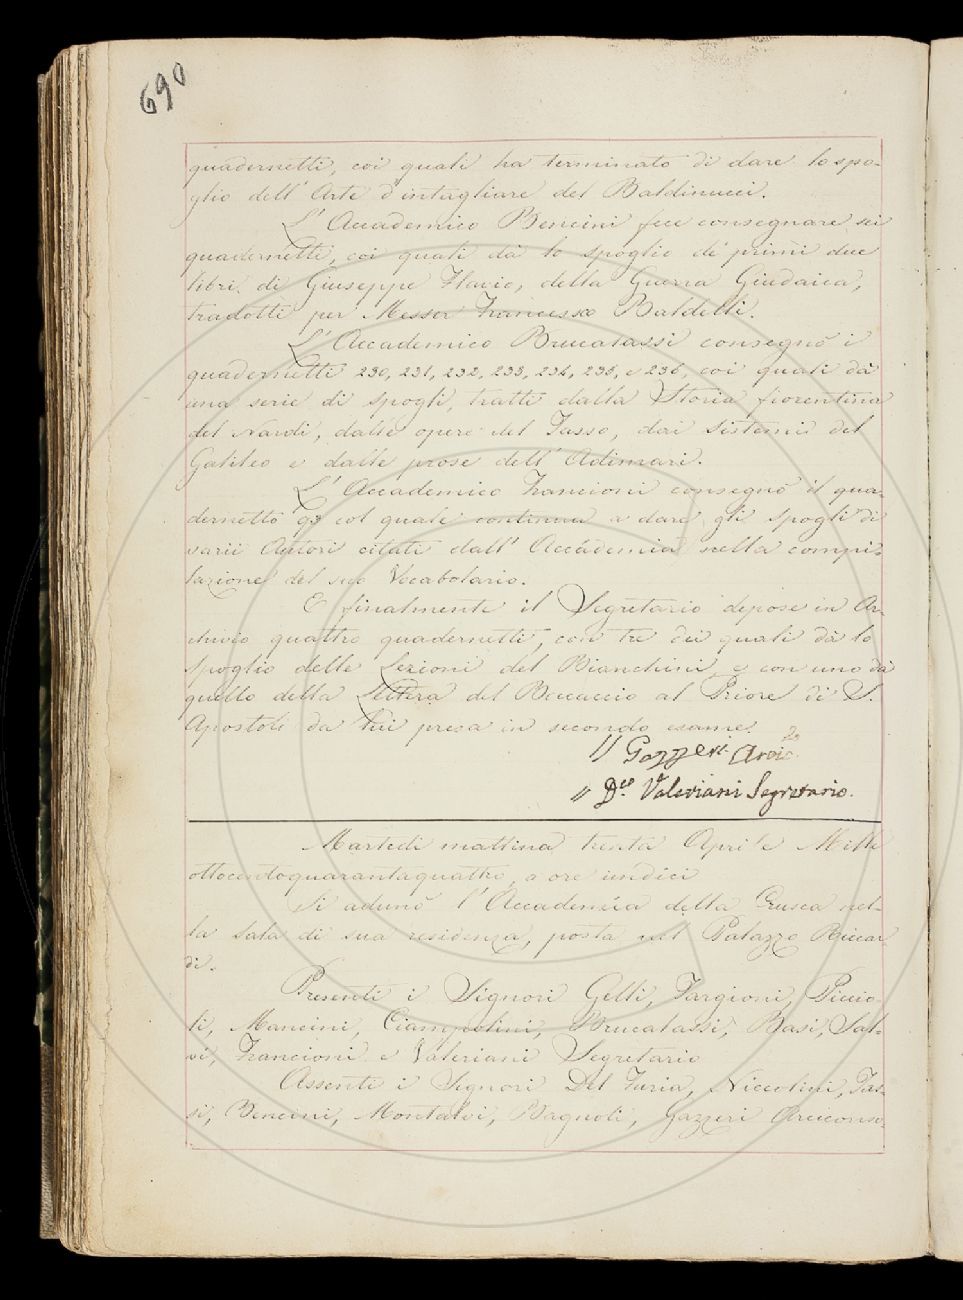 690
quadernetti, coi quali ha terminato di dare lo spo-
glio dell'Arte d'intagliare del Baldinucci.
L'Accademico Bencini fece consegnare sei
quadernetti, coi quali dà lo spoglio de' primi due
libri di Giuseppe Flavio, della Guerra Giudaica,
tradotti per Messer Francesco Baldelli.
L'Accademico Brucalassi consegnò i
quadernetti 230, 231, 232, 233, 234, 235, e 236, coi quali dà
una serie di spogli, tratti dalla Storia fiorentina
del Nardi, dalle opere del Tasso, dai Sistemi del
Galileo e dalle prose dell'Adimari.
L'Accademico Francioni consegnò il qua-
dernetto 93 col quale continua a dare gli spogli di
varii Autori citati dall'Accademia nella compi-
lazione del suo Vocabolario.
E finalmente il Segretario depose in Ar-
chivio quattro quadernetti, con tre dei quali dà lo
spoglio delle Lezioni del Bianchini e con uno dà
quello della Lettera del Boccaccio al Priore di S.
Apostoli da lui presa in secondo esame.
// Gazzeri Arcic.lo
// D.co Valeriani Segretario.
Martedì mattina trenta Aprile Mille
ottocentoquarantaquattro, a ore undici
Si adunò l'Accademia della Crusca nel-
la sala di sua residenza, posta nel Palazzo Riccar-
di.
Presenti i Signori Gelli, Targioni, Piccio-
li, Mancini, Ciampolini, Brucalassi, Basi, Sal-
vi, Francioni e Valeriani Segretario
Assenti i Signori Del Furia, Niccolini, Tas-
si, Bencini, Montalvi, Bagnoli, Gazzeri Arciconso-